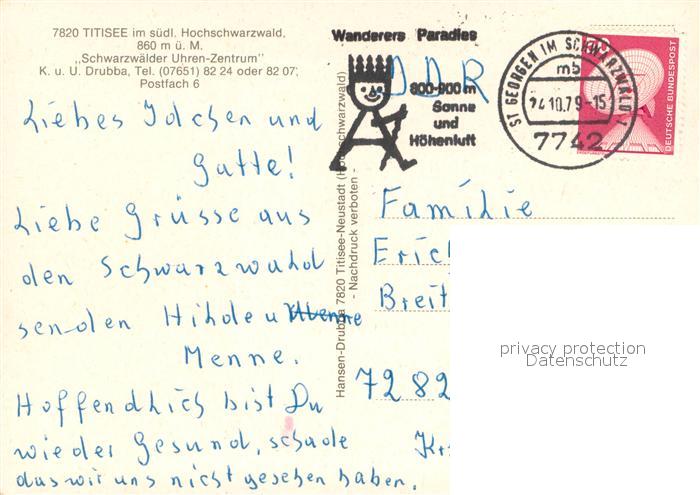 7820 TITISEE im südl. Hochschwarzwald,
860 m ü. M.
„Schwarzwälder Uhren-Zentrum"
K. u. U. Drubba, Tel. (07651) 82 24 oder 82 07,
Postfach 6
Liebes Idchen und
Gatte!
Liebe Grüsse aus
den Schwarzwald
senden Hilde u
Menne.
Hoffendlich bist Du
wieder Gesund, schade
das wir uns nicht gesehen haben.
Hansen-Drubba 7820 Titisee-Neustadt (Hochschwarzwald)
- Nachdruck verboten -
Wanderers Paradies
800-900 m
Sonne
und
Höhenluft
ST GEORGEN IM SCHWARZWALD 1
mb
24.10.79-15
7742
DEUTSCHE BUNDESPOST
DDR
Familie
Eric
Breit
7282
privacy protection
Datenschutz